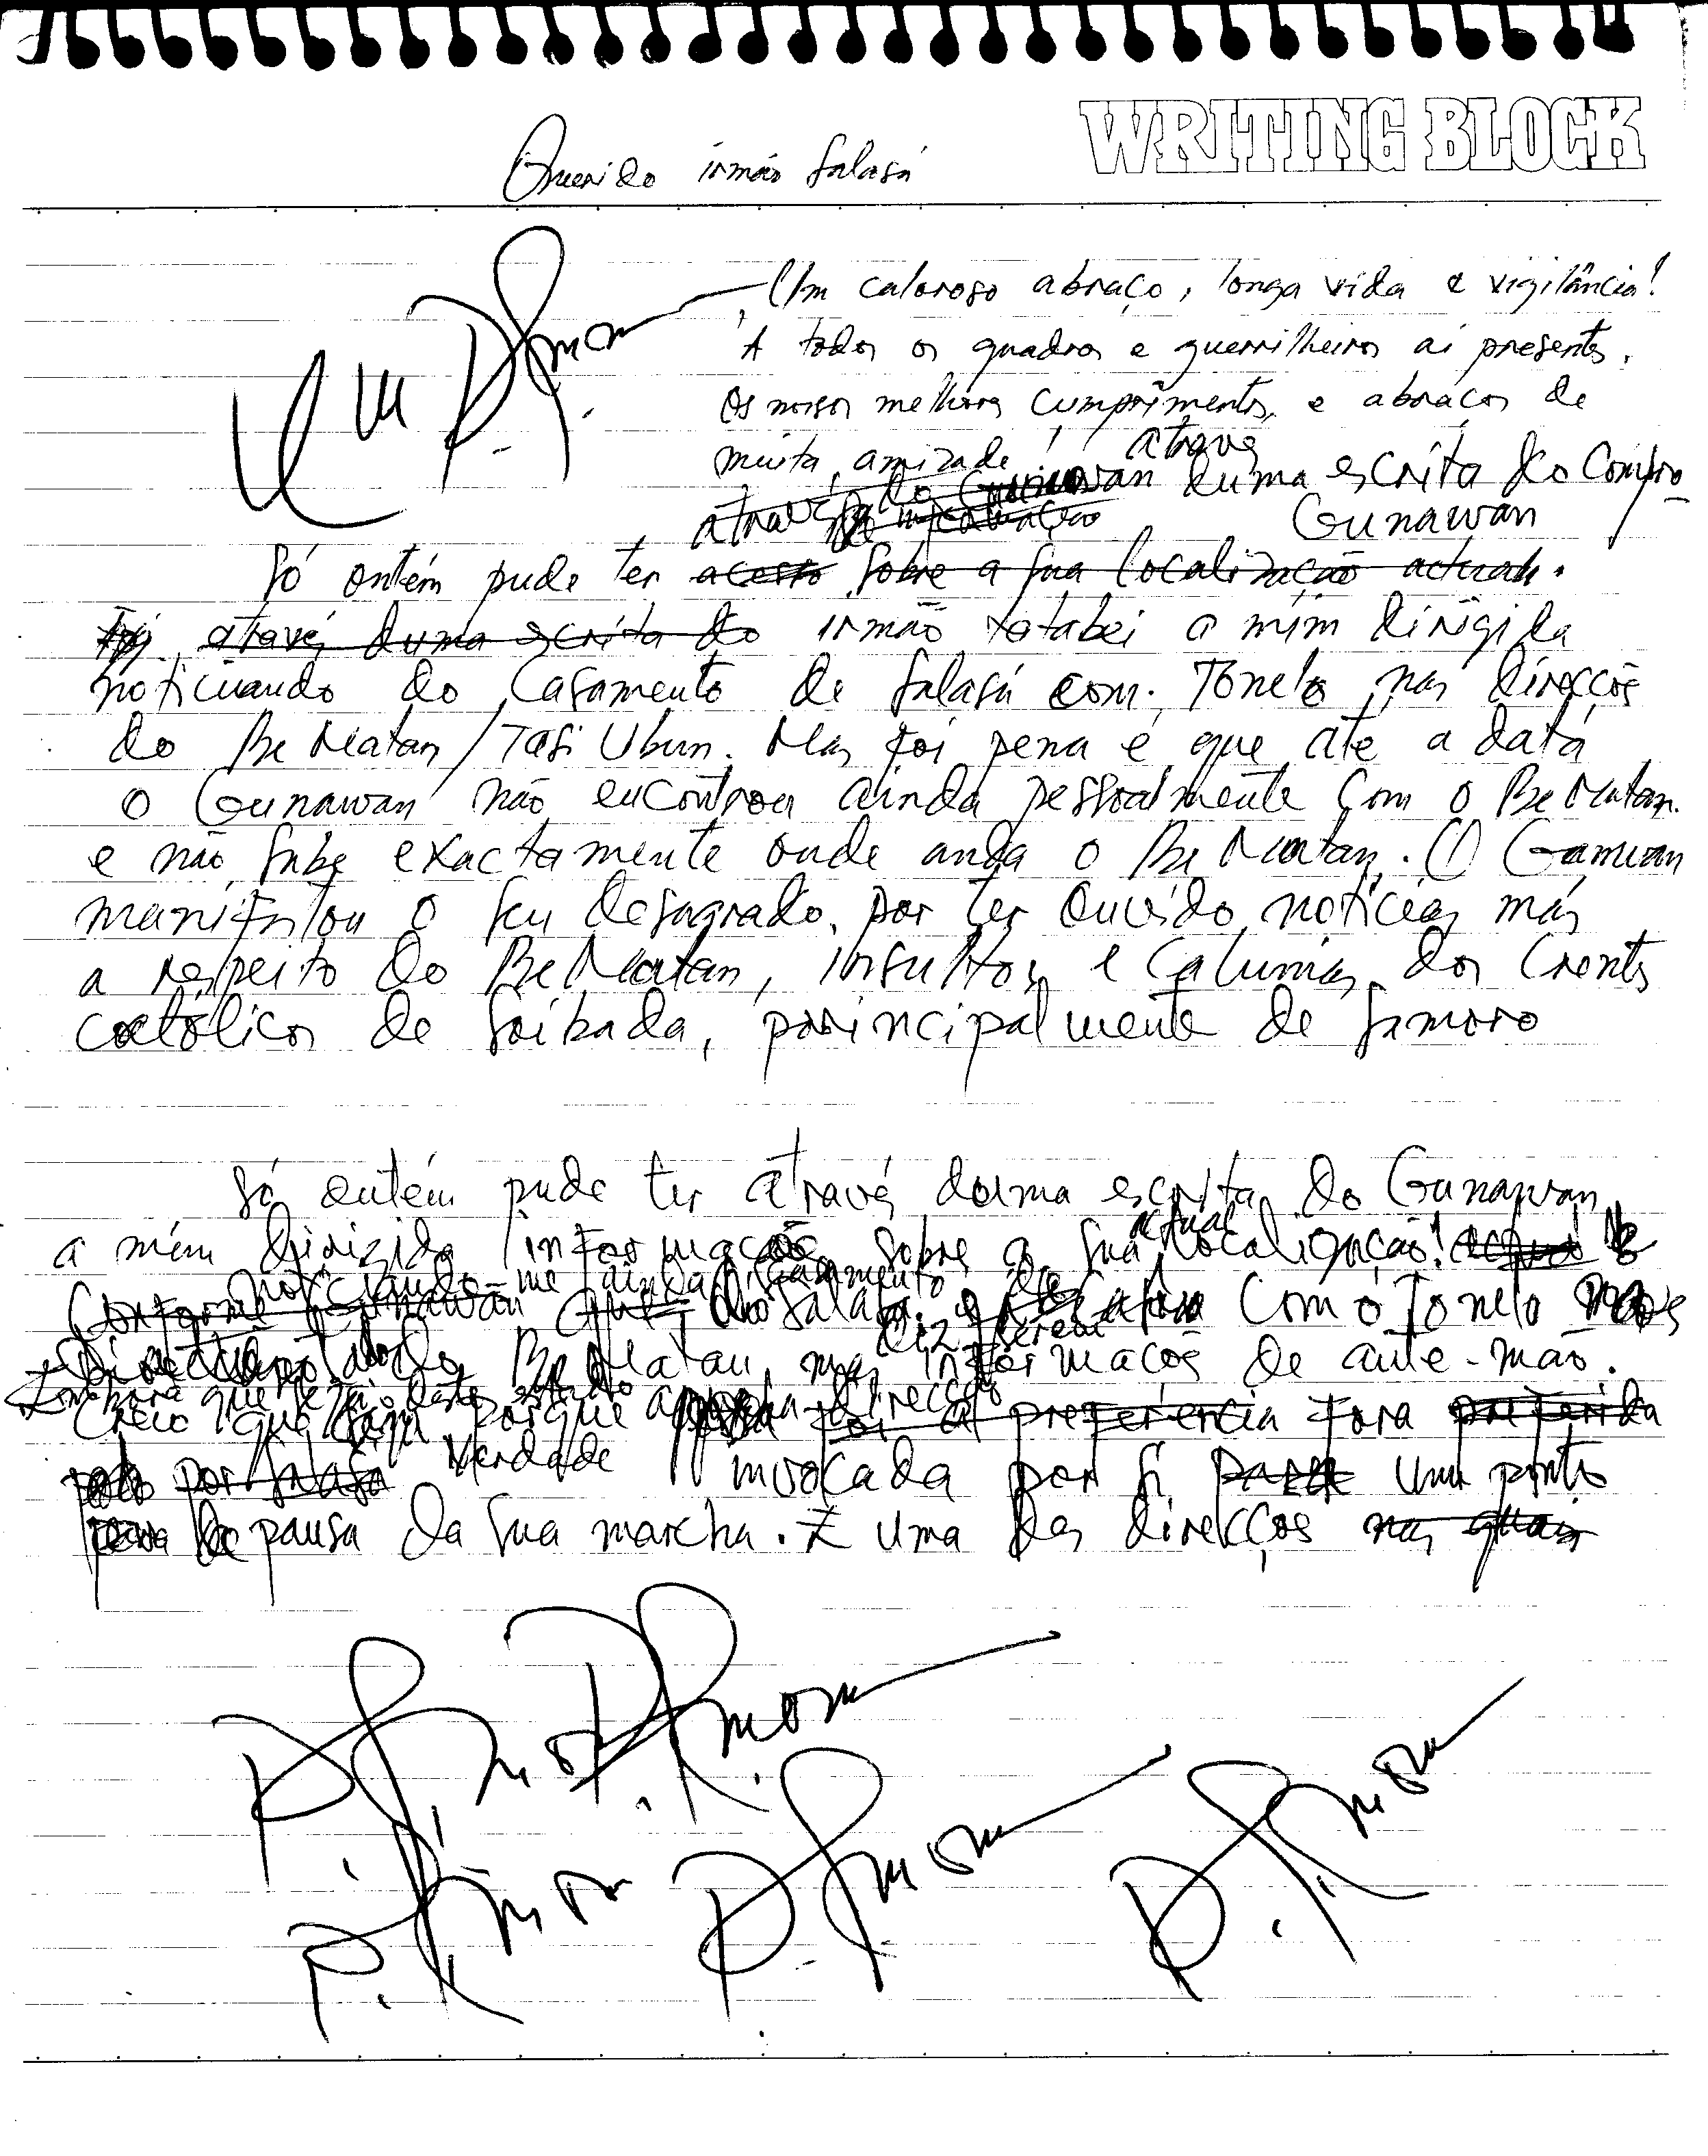 WRITING BLOCK
Querido irmão Salasá
Um caloroso abraço, longa vida e vigilância!
A todos os quadros e guerrilheiros aí presentes,
os nossos melhores cumprimentos, e abraços de
muita amizade!
através
do Gunawan duma escrita do Compro
através
Gunawan
Só ontém pude ter acesso sobre a sua localização actual.
Foi através duma escrita do irmão Xatabei a mim dirigida
noticiando do Casamento de Salasá com Tonelo nas direcções
do Be Matan/Tasi Ubun. Mas foi pena é que até a data
o Gunawan não encontrou ainda pessoalmente com o Be Matan.
e não sabe exactamente onde anda o Be Matan. O Gunawan
manifestou o seu desagrado, por ter ouvido notícias más
a respeito do Be Matan, insultos e calunias dos Crentes
católicos de Soibada, principalmente de Samoro
Só ontém pude ter através duma escrita do Gunawan
a mim dirigida informações sobre a sua actual localização!
noticiando-me ainda casamento
Conforme Gunawan que do Salasá com o Tonelo
Be Matan, mas informações de ante-mão.
Embora que
direcção
Creio que porque foi a preferência fora preferida
verdade
por invocada por si para um ponto
de pausa da sua marcha. É uma das direcções nas quais